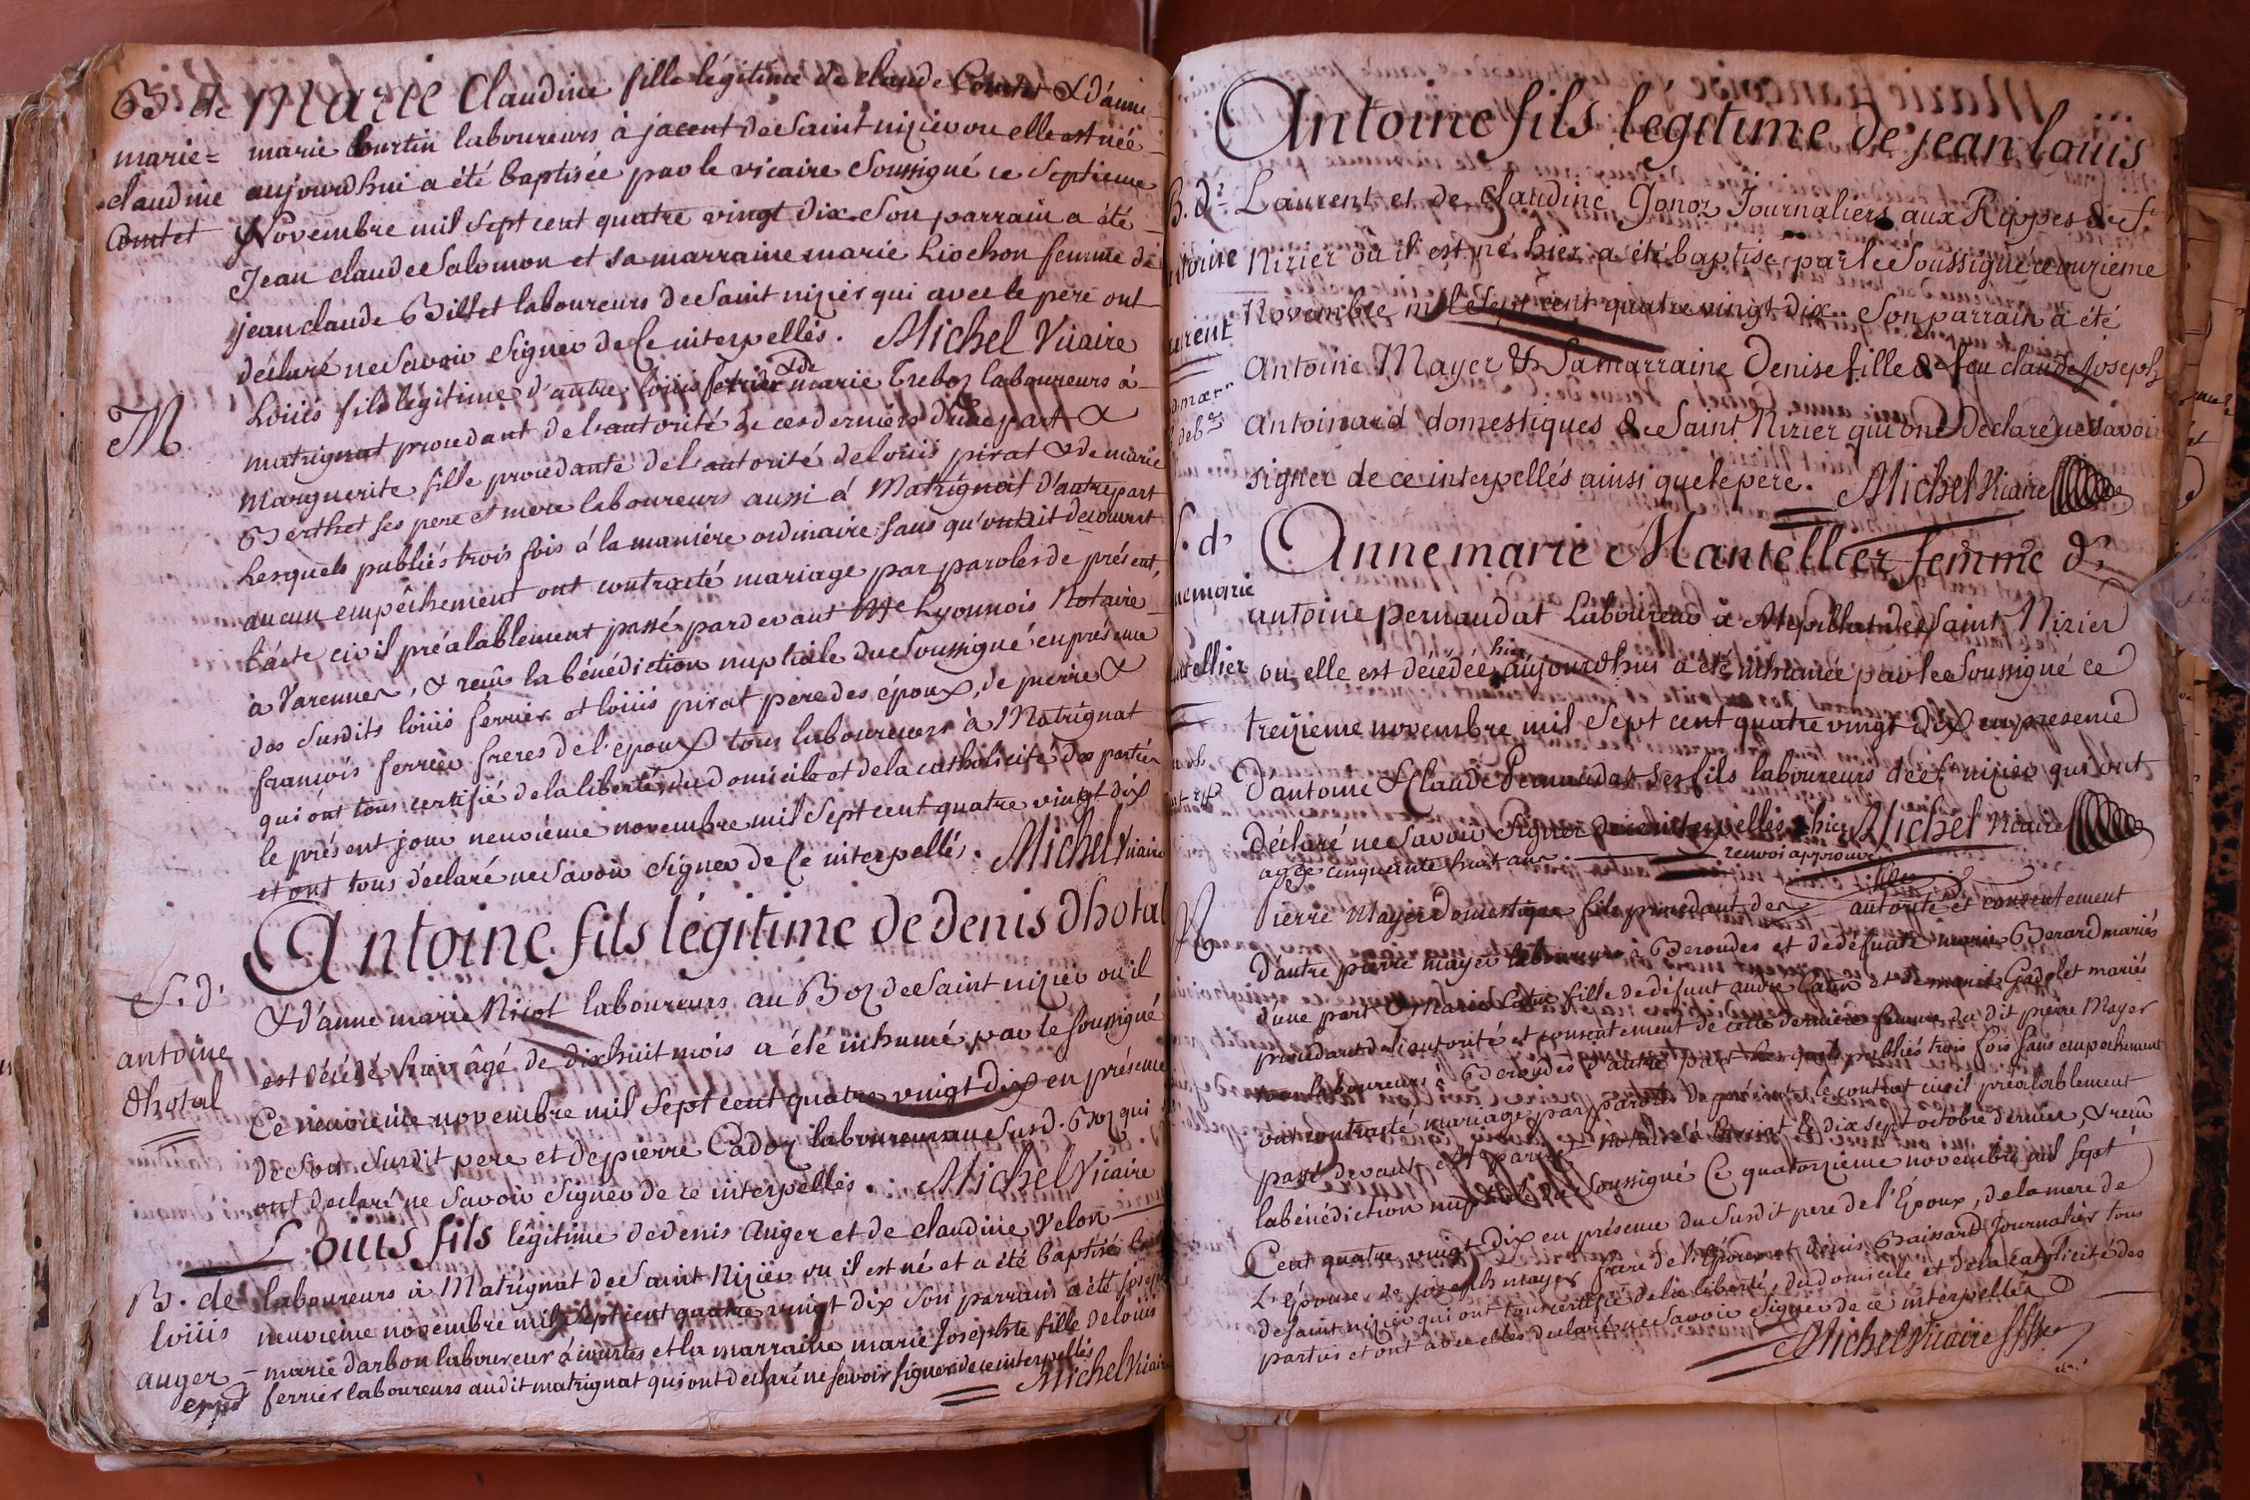 B. de
marie =
claudine
Comtet
Marie Claudine fille légitime de claude Comtet & d'anne
marie Courtin laboureurs à jacent de Saint nizier ou elle est née
aujourdhui a été baptisée par le vicaire Soussigné ce Septieme
Novembre mil Sept cent quatre vingt dix Son parrain a été
Jean claude Salomon et sa marraine marie Liochon femme de
jean claude Billet laboureurs de Saint nizier qui avec le pere ont
déclaré ne Savoir Signer de Ce interpellés. Michel Vicaire
M
Loüis fils légitime d'autre loüis ferrier &de marie Treboz laboureurs à
matrignat procedant de l'autorité de ces derniers d'une part &
Marguerite fille procedante de l'autorité de loüis pirat & de marie
Berthet ses pere et mere laboureurs aussi à Matrignat d'autre part
Lesquels publiés trois fois à la maniére ordinaire sans qu'on ait découvert
aucun empêchement ont contracté mariage par paroles de présent,
l'acte civil préalablement passé pardevant Me Lyonnois Notaire
à Varennes, & reçu la bénédiction nuptiale du Soussigné en présence
des Susdits loüis ferrier et loüis pirat pere des époux, de pierre &
françois ferrier freres de l'epoux tous laboureurs à Matrignat
qui ont tous certifié de la liberté, du domicile et de la catholicité des parties
le présent jour neuviéme novembre mil Sept cent quatre vingt dix
et ont tous déclaré ne Savoir Signer de Ce interpellés. Michel Vicaire
S. d.
antoine
dhotal
Antoine fils légitime de denis dhotal
& d'anne marie Nicot laboureurs au Boz de Saint nizier ou il
est décédé hier âgé de dix huit mois a été inhumé par le soussigné
Ce neuvieme novembre mil Sept cent quatre vingt dix en présence
de Son Susdit pere et de pierre Cadoz laboureurs au Susd. Boz qui
ont declaré ne Savoir Signer de ce interpellés. Michel Vicaire
B. de
loüis
auger
Louis fils légitime de denis auger et de claudine Velon
laboureurs à Matrignat de Saint Nizier ou il est né et a été baptisé le
neuvieme novembre mil Sept cent quatre vingt dix Son parrain a été joseph
marie darbon laboureur à courtes et la marraine marie Josephte fille de loüis
ferrier laboureurs audit matrignat qui ont declaré ne Savoir signer de ce interpellés
Michel Vicaire
B. d'
Antoine fils légitime de jean loüis
Laurent et de Claudine Gonoz Journaliers aux Rippes de St
Nizier où il est né hier a été baptisé par le Soussigné ce onzieme
Novembre mil Sept cent quatre vingt dix Son parrain a été
Antoine Mayer & Sa marraine Denise fille de feu claude Joseph
Antoinard domestiques de Saint Nizier qui ont Declaré ne Savoir
signer de ce interpellés ainsi que le pere. Michel Vicaire
S. d
Anne marie Mantellier femme d'
antoine pernaudat Laboureur à de Saint Nizier
ou elle est décédée hier aujourdhui a été inhumée par le Soussigné ce
treizieme novembre mil Sept cent quatre vingt dix en presence
d'antoine & Claude Pernaudat Ses fils laboureurs de St nizier qui ont
déclaré ne Savoir Signer de ce interpellés hier Michel Vicaire
agée cinquante huit ans. renvoi approuvé
M
Pierre Mayer Domestique fils procedant de autorité et consentement
d'autre pierre mayer laboureurs à Beroudes et de défunte marie Berard mariés
d'une part & Marie Catin fille de défunt andré Catin et de marie Gadolet mariés
procedant de l'autorité et consentement de cette derniere femme du dit pierre Mayer
laboureurs à Beroudes d'autre part Lesquels publiés trois fois Sans empechement
ont contracté mariage par parole de présent, le contrat civil préalablement
passé devant Me notaire à le dix sept octobre dernier, & reçu
la bénédiction nuptiale du Soussigné Ce quatorzieme novembre mil Sept
Cent quatre vingt Dix en présence du Susdit pere de l'Epoux, de la mere de
l'Epouse, de joseph mayer frere de l'Epoux et denis Baissard Journalier tous
de Saint nizier qui ont tous certifié de la liberté, du domicile et de la catolicité des
parties et ont avec elles declaré ne Savoir Signer de ce interpellés
Michel Vicaire